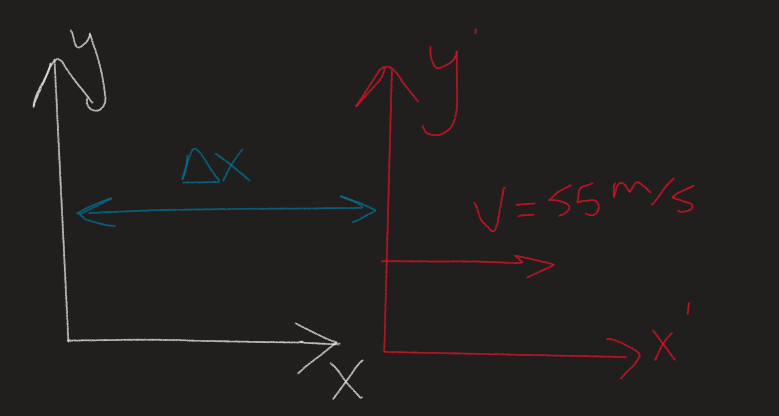 y
y'
Δx
V = 55 m/s
x'
x